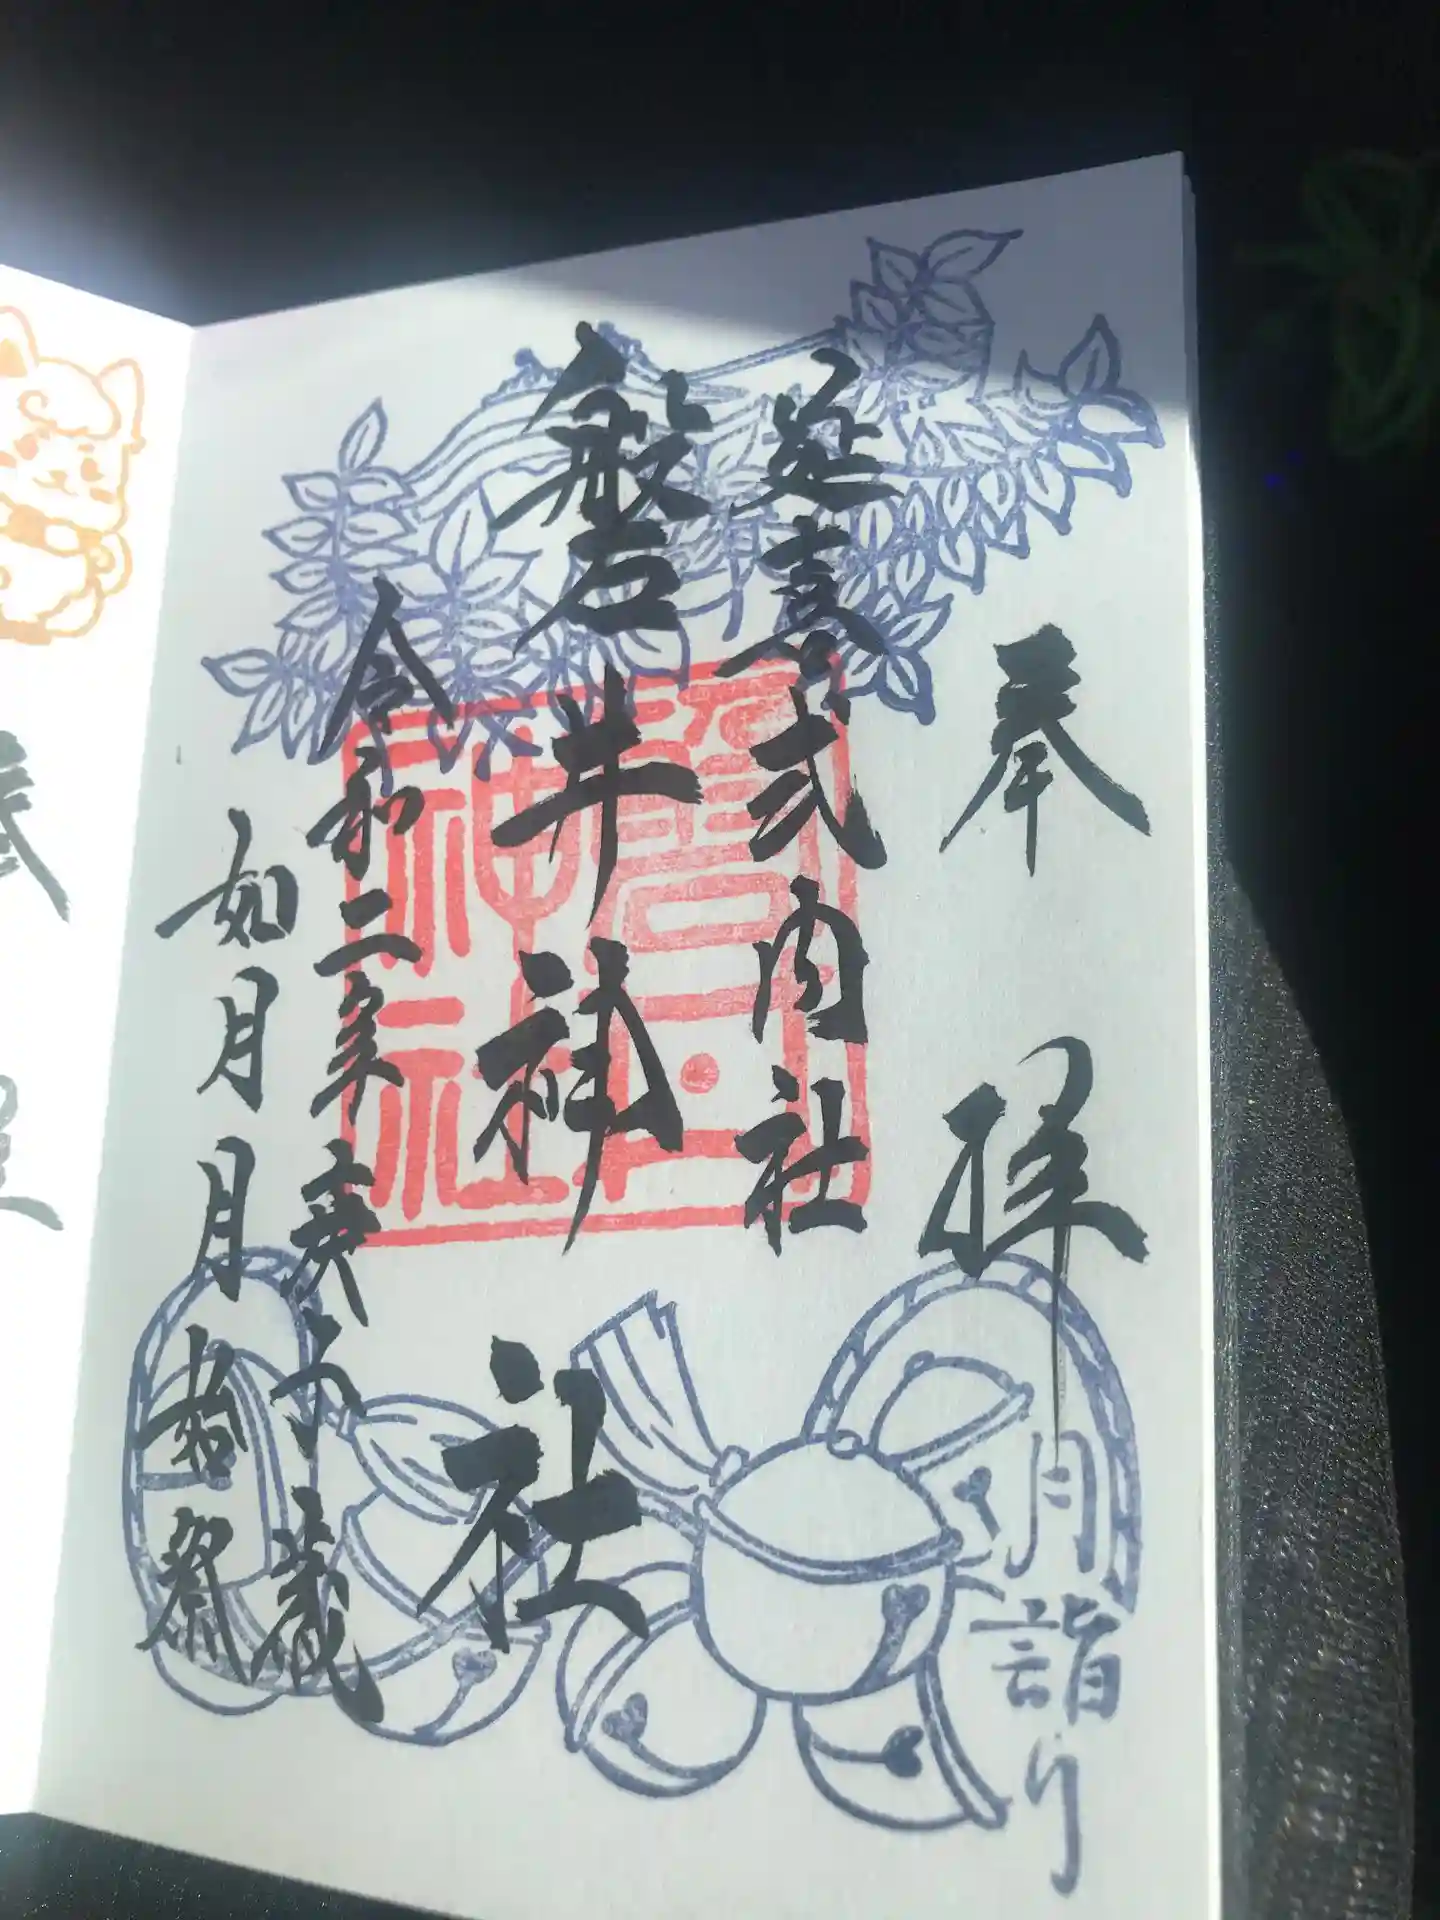 奉拝
延喜式内社
磐井神社
令和二年庚子歳
如月月始祭
月詣り
磐井神社